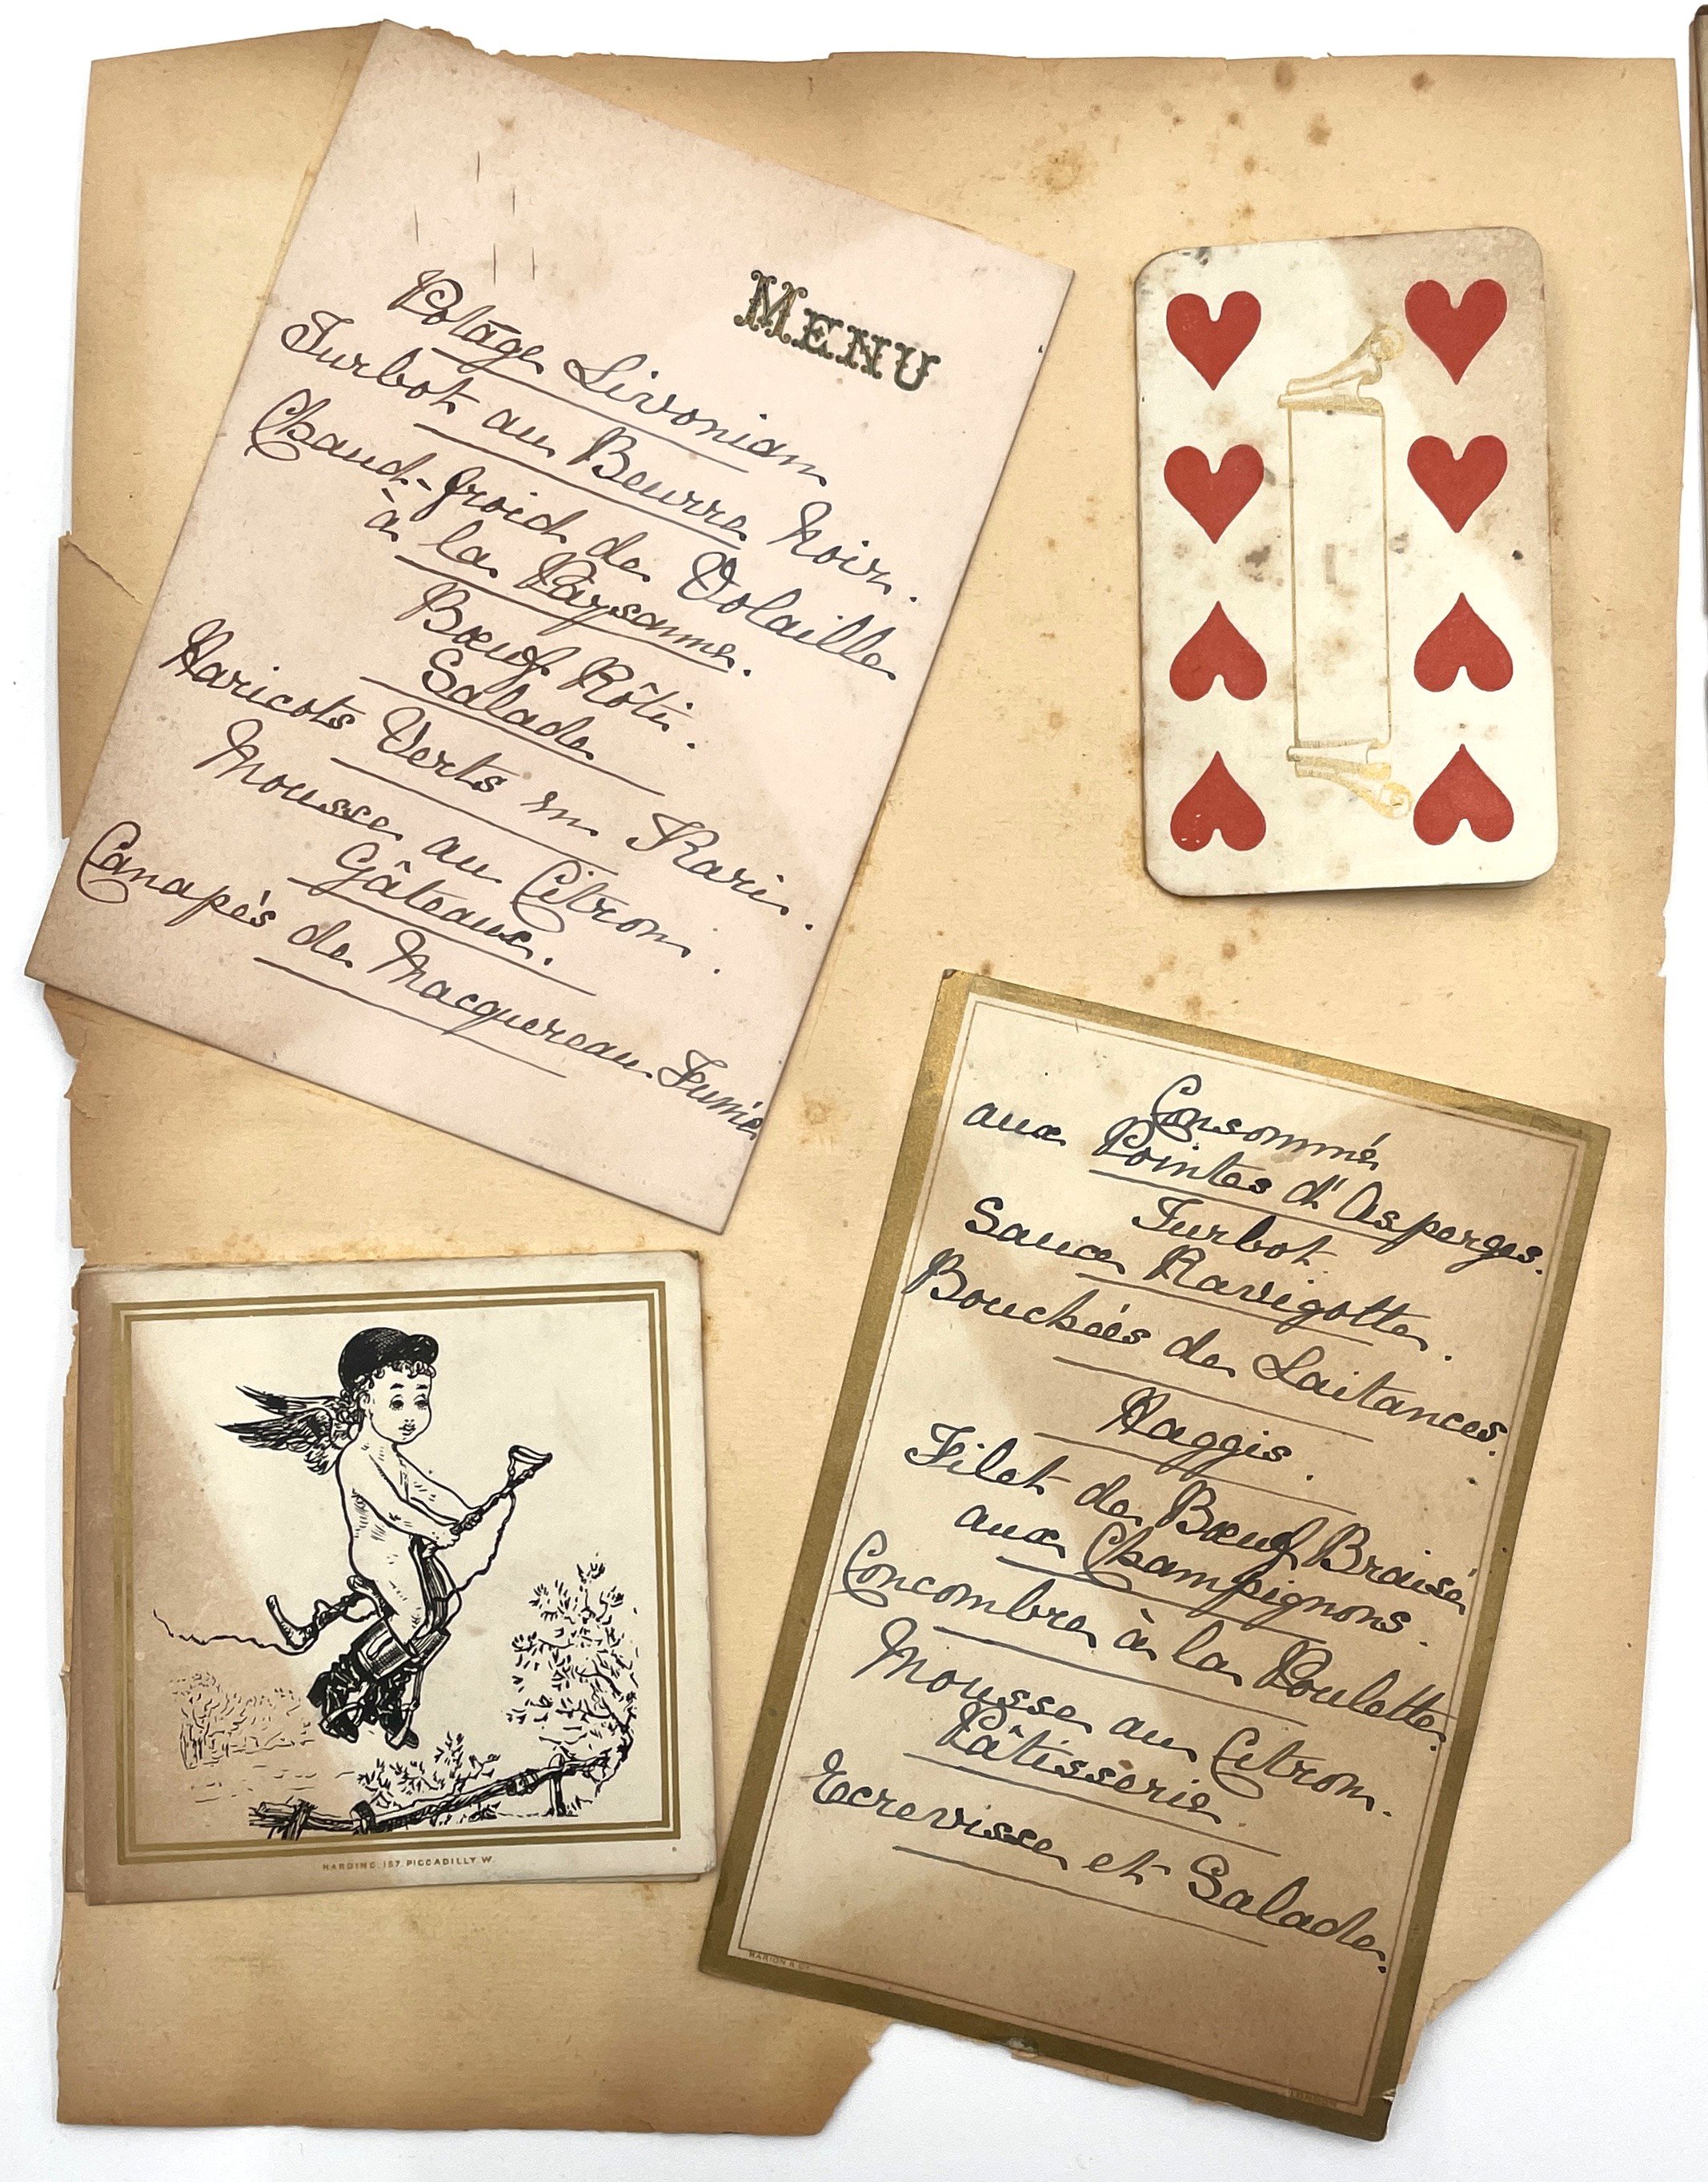 MENU
Potage Livonian
Turbot au Beurre Noir.
Chaud-froid de Volaille
à la Paysanne.
Bœuf Rôti.
Salade
Haricots Verts en Kari.
Mousse au Citron.
Gâteaux.
Canapés de Macquereau Fumé
Consommé
aux Pointes d'Asperges.
Turbot
Sauce Ravigotte.
Bouchées de Laitances.
Haggis.
Filet de Bœuf Braisé
aux Champignons.
Concombre à la Poulette.
Mousse au Citron.
Pâtisserie
Ecrevisse et Salade.
MARION & Co
LONDON
HARDING. 157. PICCADILLY. W.